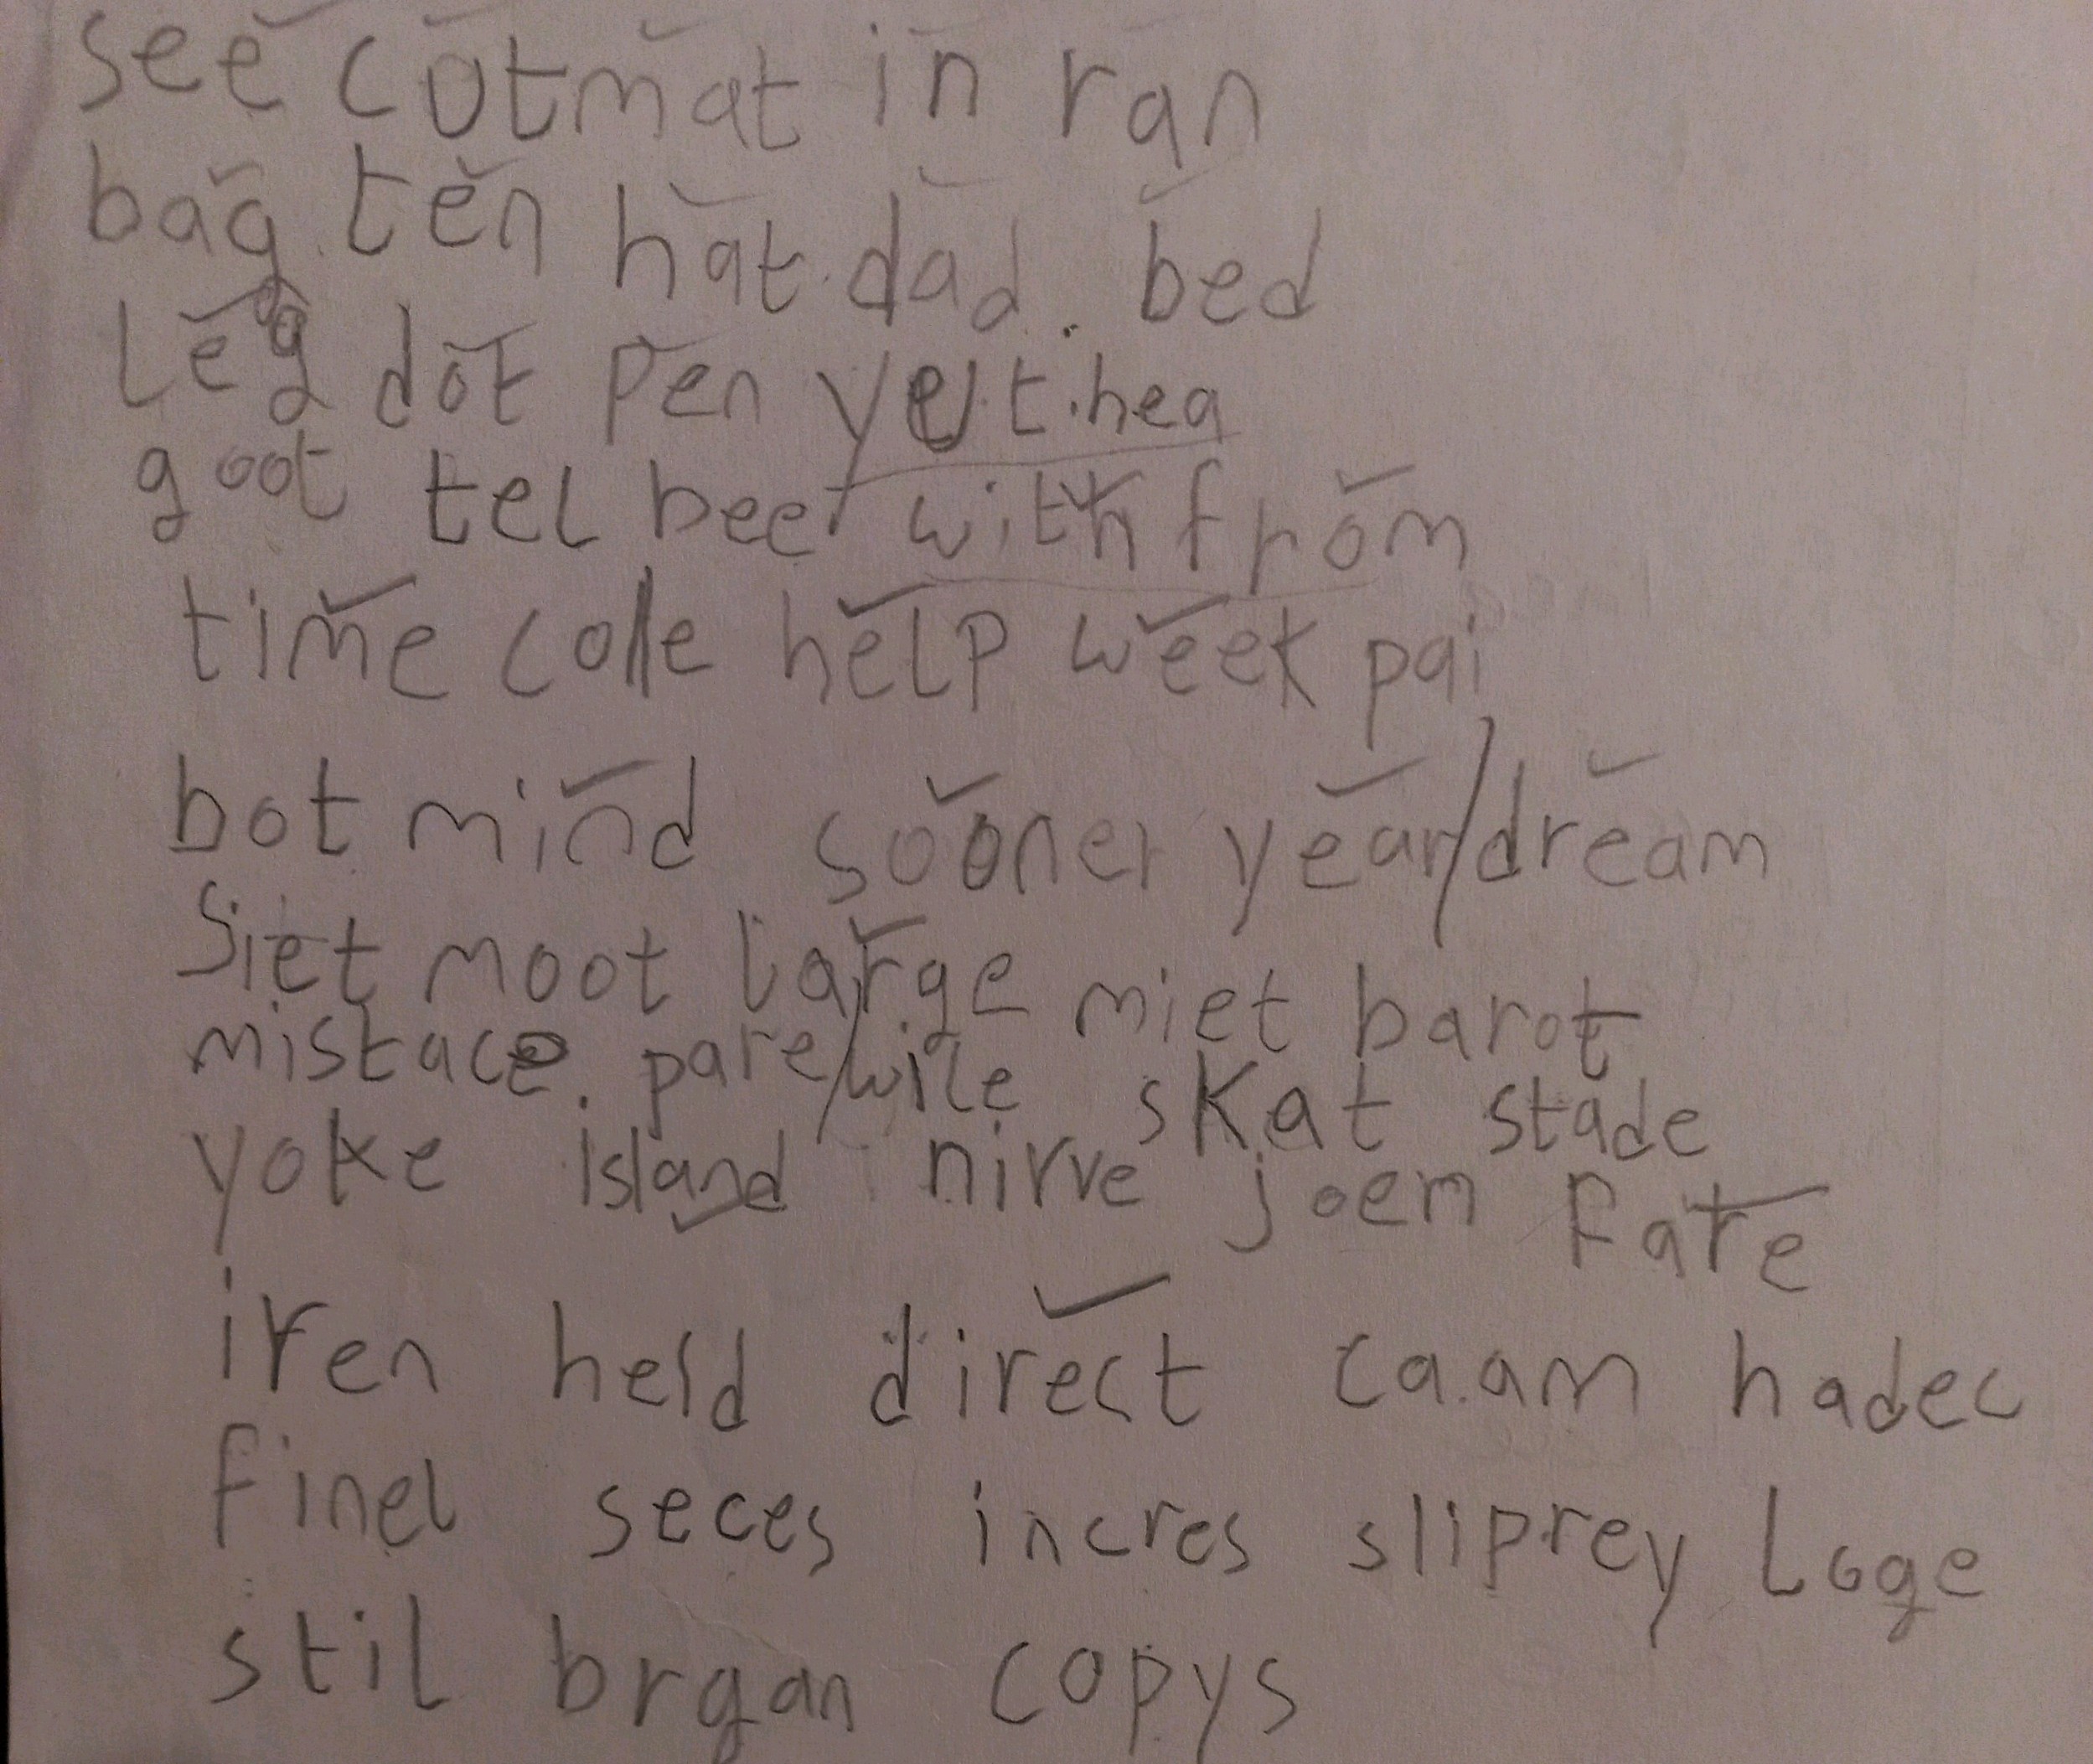 see cut mat in ran
bag ten hat dad. bed
leg dot pen yet hea
goot tel beet with from
time colle help week pai
bot mind sooner year/dream
Siet moot large miet barot
mistace. pare/wile skat stade
yoke island nirve joem fate
iren held direct caam hadec
finel seces incres sliprey loge
stil brgan copys